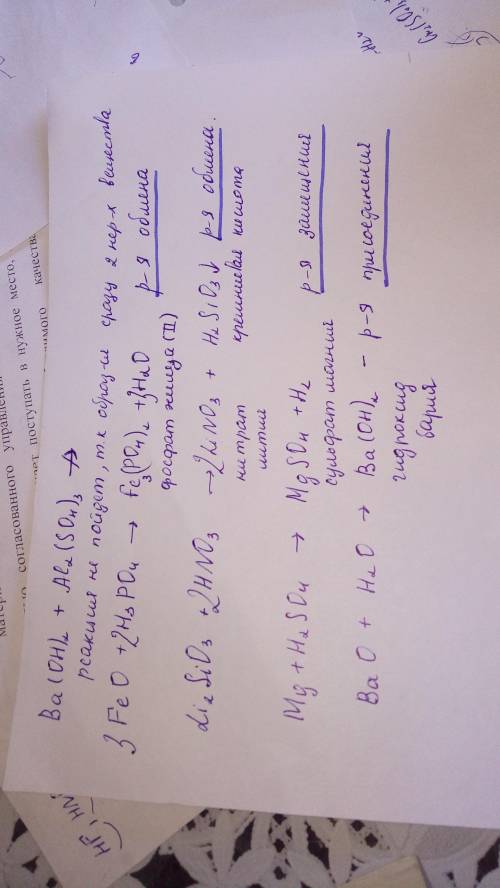 Ba(OH)₂ + Al₂(SO₄)₃ ↛
реакция не пойдет, т.к образ-ся сразу 2 нер-х вещества
3FeO + 2H₃PO₄ → Fe₃(PO₄)₂ + 3H₂O р-я обмена
фосфат железа (II)
Li₂SiO₃ + 2HNO₃ → 2LiNO₃ + H₂SiO₃↓ р-я обмена.
нитрат лития кремниевая кислота
Mg + H₂SO₄ → MgSO₄ + H₂ р-я замещения
сульфат магния
BaO + H₂O → Ba(OH)₂ - р-я присоединения
гидроксид
бария
согласованного управления
поступать в нужное место,
качеств